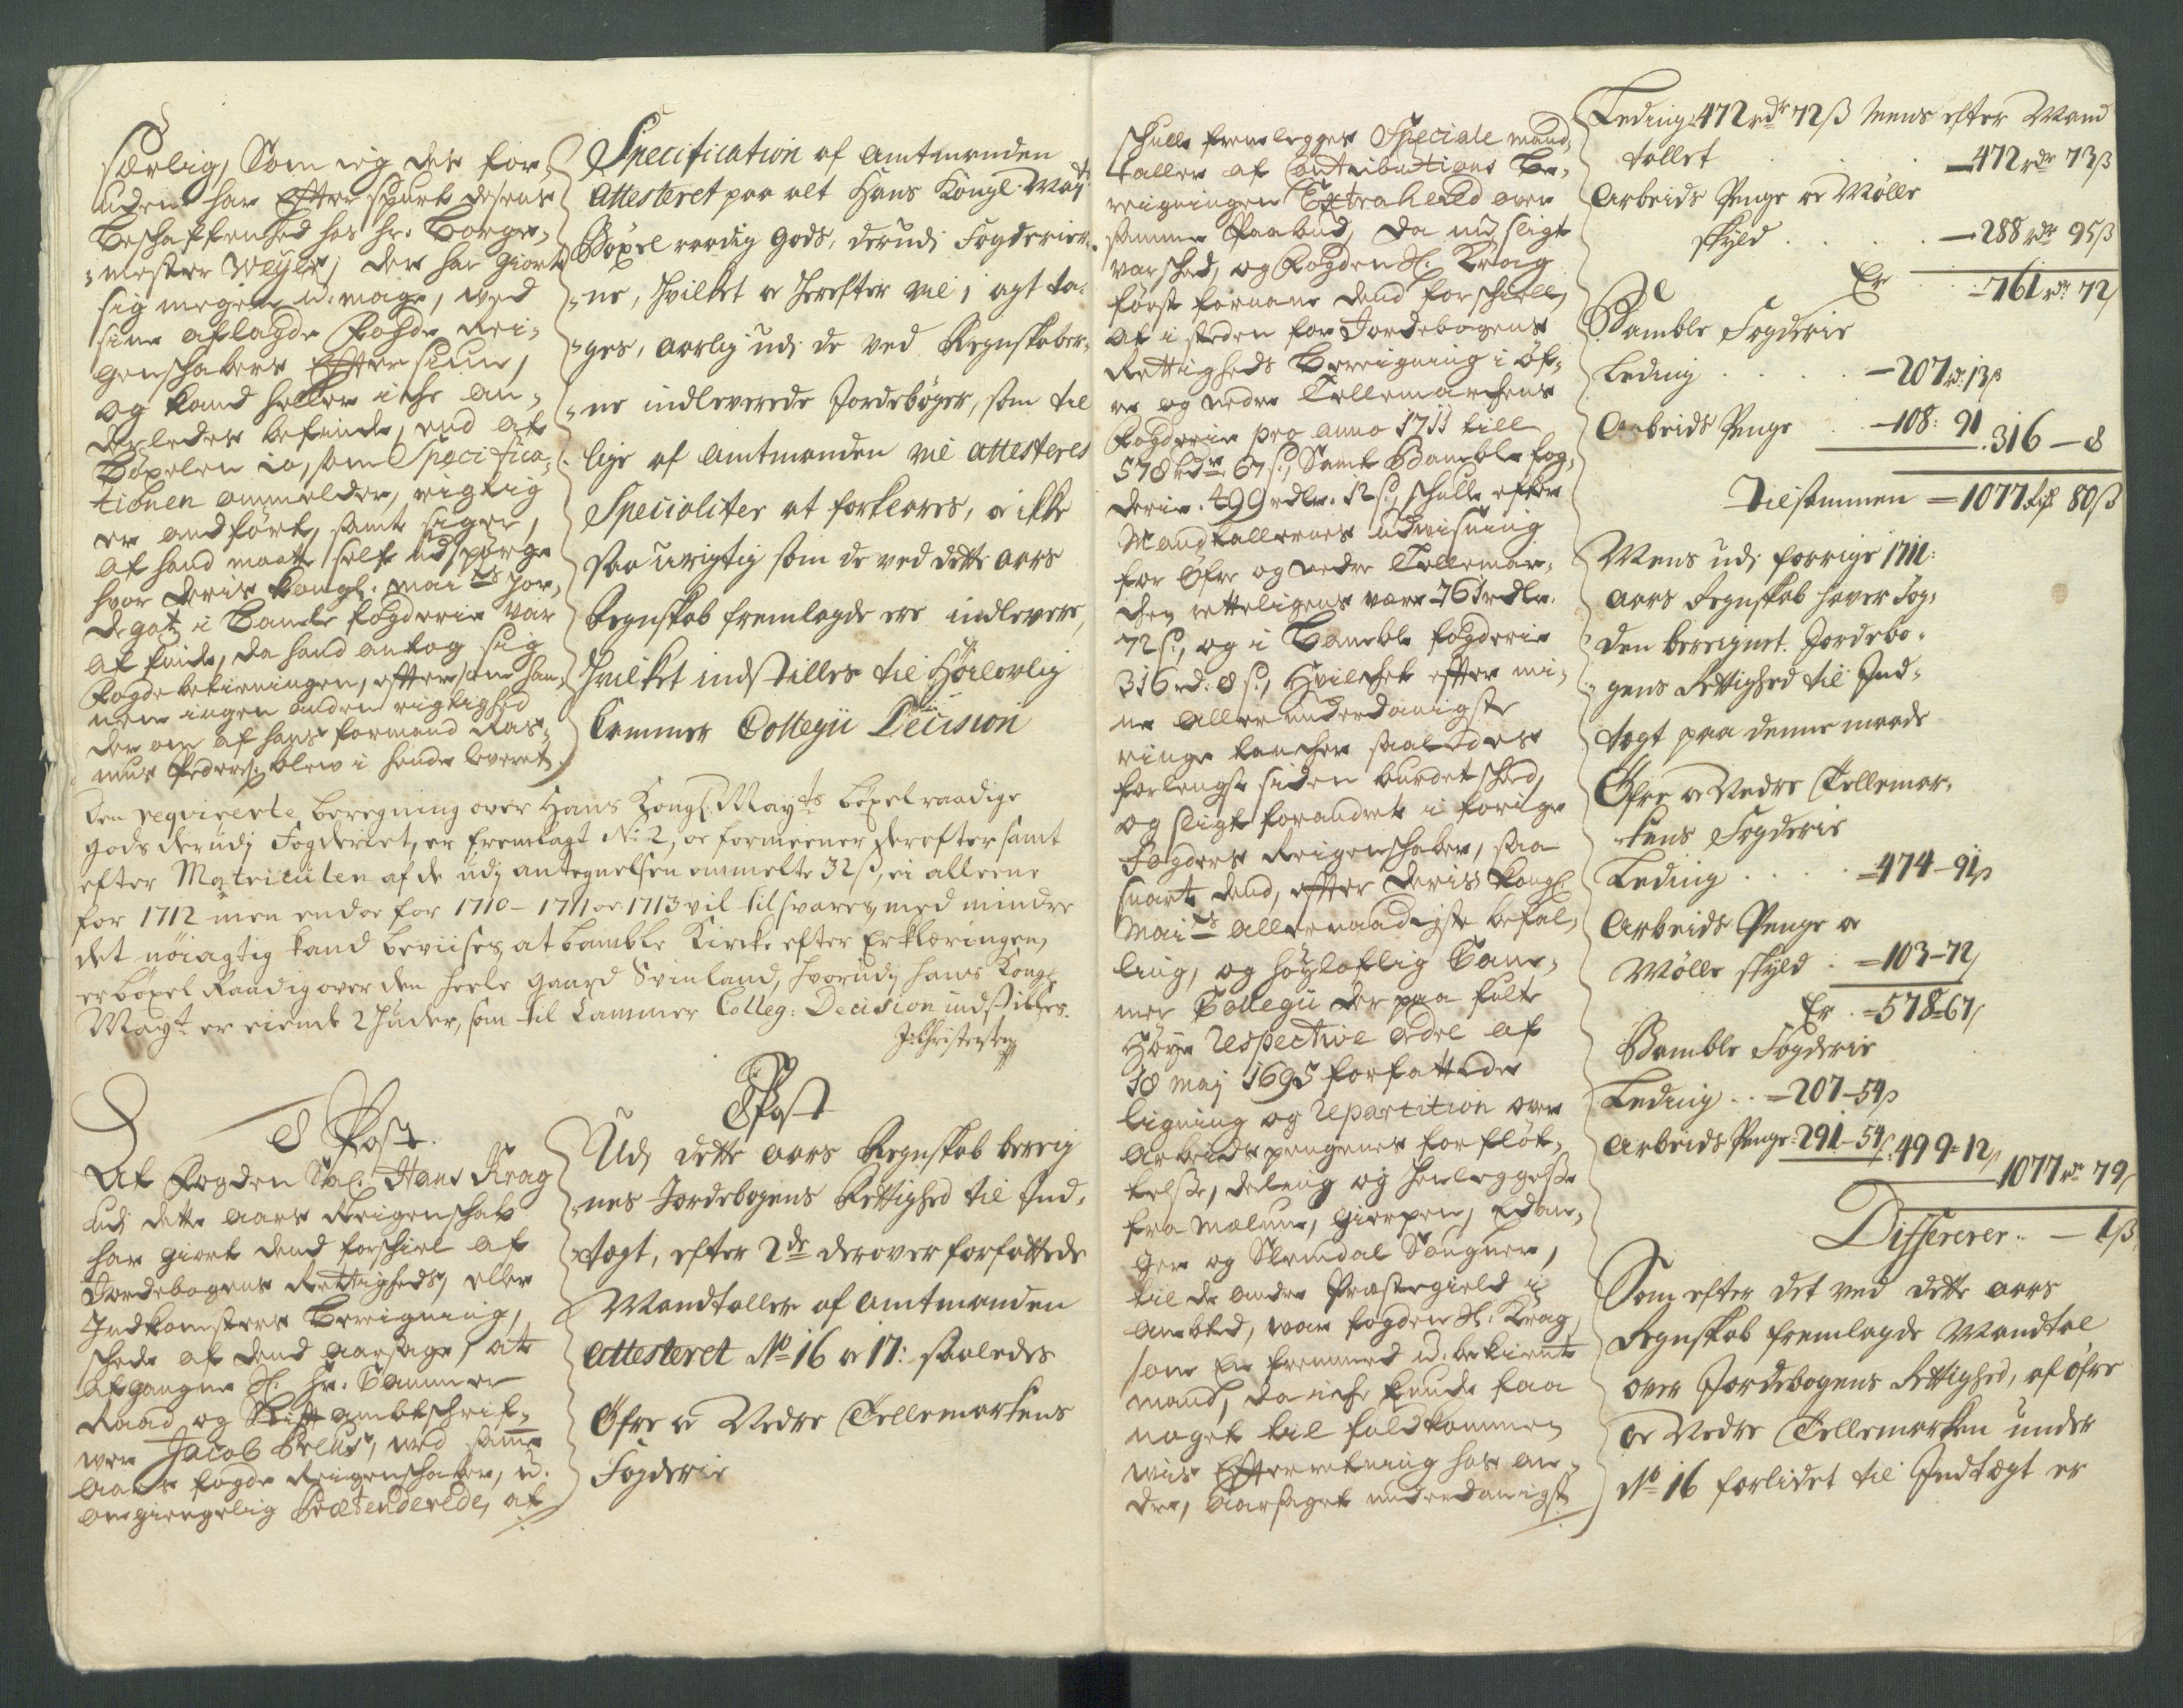 særlig, Som ieg der for,
uden har Effter spurt desens
beschaffenhed hos hr: Borge,
mester Weyer, der har giort
sig megen u:mage, med
sine aflagde Fogde Rei,
genschabers Effter siun,
og kand heller iche an,
derledes befinde, end at
Böxelen io, som Specifica,
tionen ommelder, rigtig
er andført, samt siger,
at hand maatte self udspørge
hvor deris kongl: mai:ts Jor,
degotz i Bamble fogderie var
at finde, da hand antog sig
Fogde betieningen, effter som ham,
nem ingen anden rigtighed
der om af hans formand Ras,
mus Peders: blew i hende leveret.
Specification af amtmanden
attesteret paa alt Hans Kongl. Mayts
Böxel raadig Gods, derudi Fogderier,
ne, hvilket er herefter vil i agt ta,
ges, aarlig udi de ved Regnskaber,
ne indleverede Jordebøger, som til
lige af amtmanden vil attesteres
Specialiter at forklares, oc ikke
saa urigtig som de ved dette aars
Regnskab fremlagde ere indlevere,
hvilket indstilles til Høilovlig
Cammer Collegii Decision
Den reqvirerte beregning over Hans Kongl: Mayts böxel raadige
gods derudj Fogderiet, er fremlagt No: 2, oc formeener derefter samt
efter Matriculen af de udj antegnelsen ommelte 32 ß, ei alleene
for 1712 men endoc for 1710 - 1711 oc 1713 vil tilsvares, med mindre
det nøiagtig kand beviises, at bamble Kircke efter Erklæringen,
er böxel Raadig over den heele gaard Svinland, hvorudj hans Kongl
Mayt er eiende 2 huder, som til Cammer Colleg: Decision indstilles.
J: Christensen
8 Post.
At Fogden Sal: Hans Krag
udi dette aars Reigenschab
har giort dend forschiel af
Jordebogens Rettigheds, eller
Indkomsters Bereigning,
schede af dend aarsage, at
afgangne Sl: Hr. Cammer
Raad og Stift ambtschrif,
wer Jacob Preus, ved samme
aars fogde Reigenschaber, u:
omgiengelig Prætenderede, at
8 Post
Udi dette aars Regnskab bereig
nes Jordebogens Rettighed til Ind,
tægt, efter 2de derover forfattede
Mandtaller af amtmanden
attesteret No 16 oc 17: saaledes
Øfre oc Nedre Tellemarkens
Fogderie
schulle fremlegges Speciale mand,
taller af Contributions Be,
reigningen Extraherede over
samme Paabud, Da nu sligt
var sched, og Fogden Sl: Krag
først fornam dend forschiell,
at i steden for Jordebogens
Rettigheds Bereigning i öf,
re og nedre Tellemarchens
Fogderie pro anno 1711 till
578 rdr 67 ß, Samt Bamble fog,
derie 499 rdlr. 12 ß, schulle efter
Mandtallernes udvisning
for Øfre og nedre Tellemar,
chen retteligens være 761 rdlr.
72 ß, og i Bamble fogderie
316 rd. 8 ß, Hvilchet effter mi,
ne allerunderdanigste
ringe tancher saaledes
forlengst siden burdet sched,
og sligt forandret i forige
Fogders Reigenschaber, saa
snart dend, effter deris kongl:
Mai:ts allernaadigste befal,
ling, og høyloflig Cam,
mer Collegii der paa fulte
Höye respective ordre af
18 Maj 1695 forfattede
ligning og repartition over
Arbeidspengenes forfløt,
telse, deeling og henleggelse
fra Mælum, gierpen, Edan,
ger og Slemdal Sougner,
til de andre Præstegield i
ambted, war fogden Sl: Krag,
som En fremmed u:bekient
mand, da iche kunde faa
noget til fuldkommen
wis Effterretning hos an,
dre, aarsaget underdanigst
Leding 472 rdr 72 ß Mens efter Mand
tallet . . . . — 472 rdr 73 ß
Arbeids Penge oc Mølle
skyld . . . . — 288 rdr 95 ß
Er — 761 rdr 72 ß
Bamble Fogderie
Leding . . . . — 207 rd. 13 ß
Arbeids Penge . . — 108: 91 . 316 — 8
Tilsammen = 1077 rdr 80 ß
Mens udi forrige 1711:
aars Regnskab haver Fog,
den bereignet Jordebo,
gens Rettighed til Ind,
tægt paa denne maade
Øfre oc Nedre Tellemar,
kens Fogderie
Leding . . . . = 474 — 91 ß
Arbeids Penge oc
Mølle skyld . = 103 — 72 ß
Er . = 578 = 67 ß
Bamble Fogderie
Leding . . = 207 — 54 ß
Arbeids Penge = 291 — 54 ß . 499 = 12 ß
1077 rdr 79 ß
Differerer . . — 1 ß
Som efter det ved dette aars
Regnskab fremlagde Mandtal
over Jordebogens Rettighed, af øfre
oc Nedre Tellemarken under
No 16 forlidet til Indtægt er